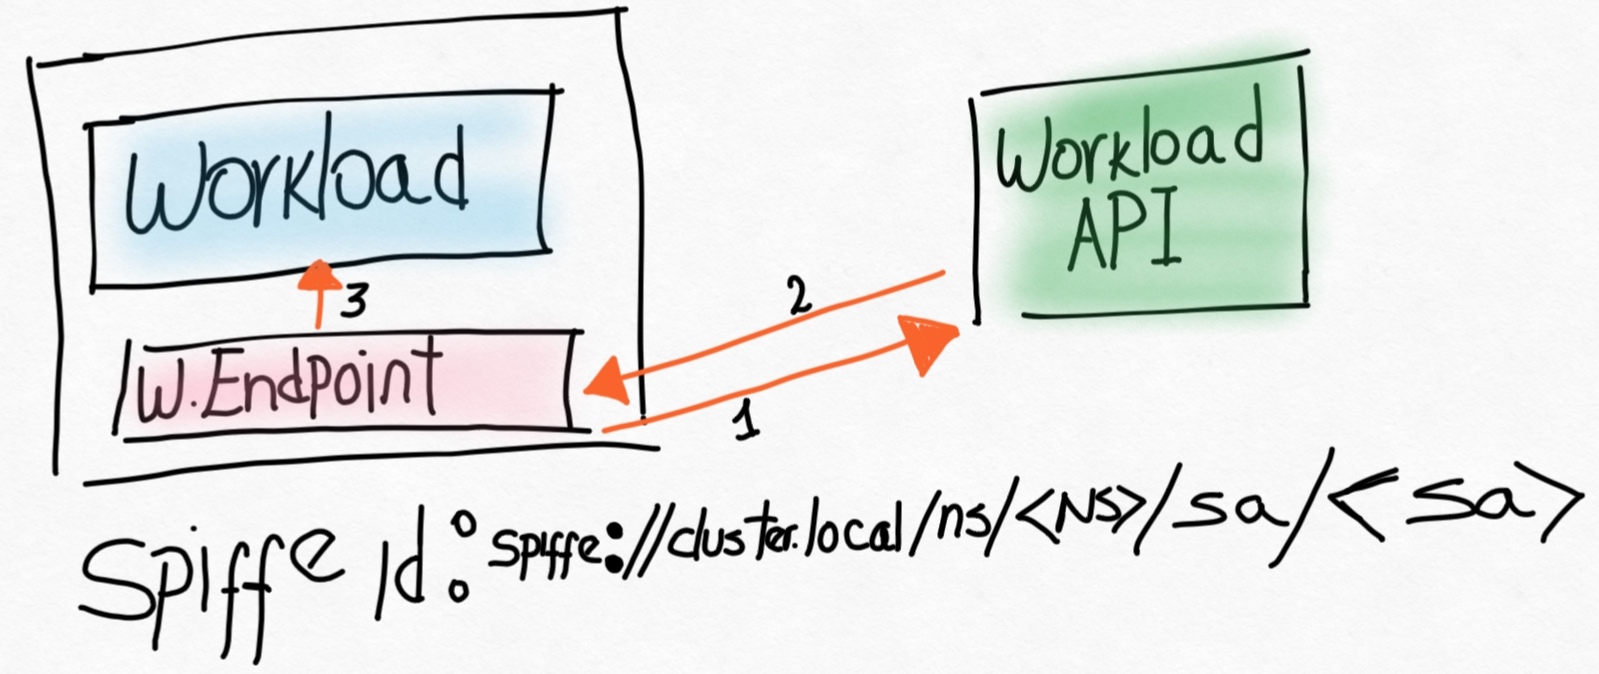 Workload
3
W.Endpoint
2
1
Workload
API
Spiffe id: spiffe://cluster.local/ns/<NS>/sa/<sa>